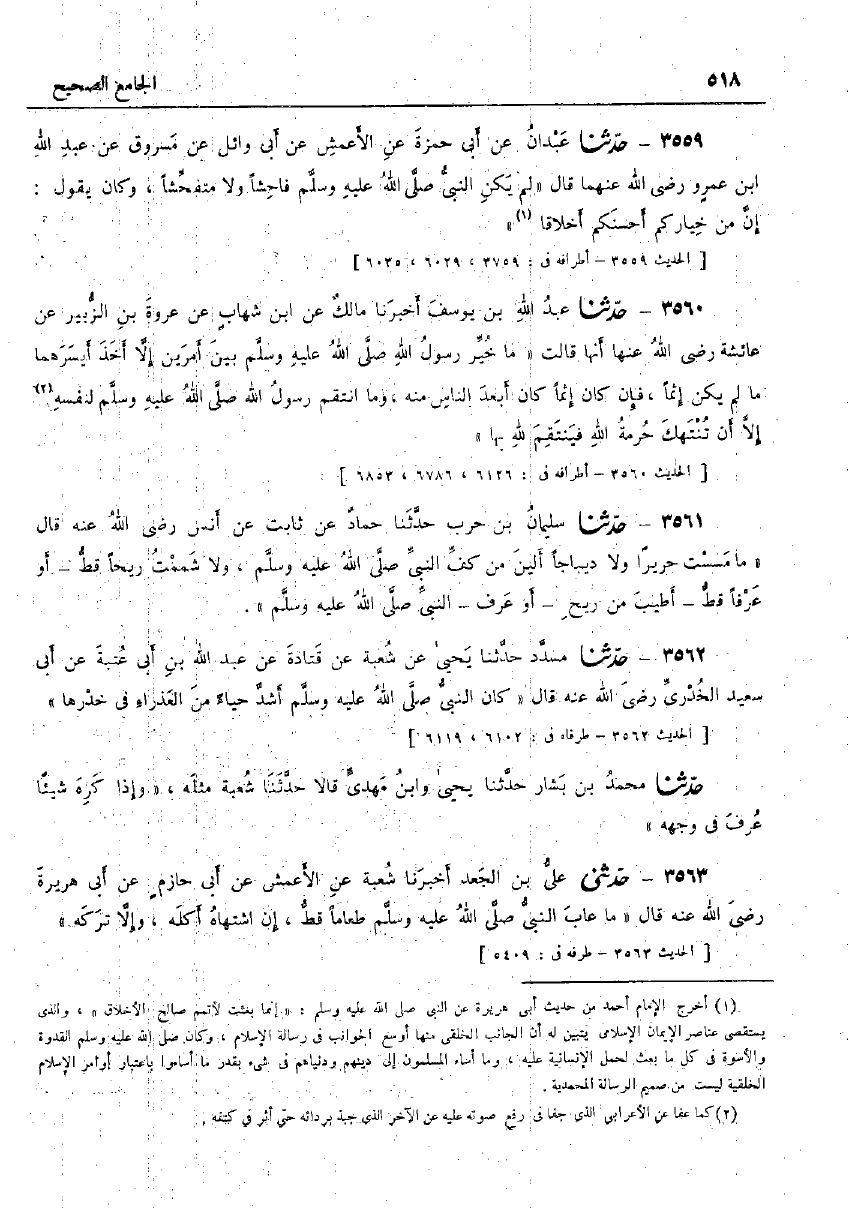 ٥١٨ الجامع الصحيح
٣٥٥٩ – حدّثنا عَبْدانُ عن أَبى حمزةَ عنِ الأَعمشِ عن أَبى وائل عن مَسروق عن عبدِ اللهِ
ابن عمرٍو رضى الله عنهما قال « لم يَكنِ النبىُّ صلَّى اللهُ عليهِ وسلَّم فاحِشاً ولا متفحِّشاً ، وكان يقول :
إنَّ من خِياركم أحسنَكم أخلاقا (١) »
[ الحديث ٣٥٥٩ – أطرافه فى : ٣٧٥٩ ، ٦٠٢٩ ، ٦٠٣٥ ]
٣٥٦٠ – حدّثنا عبدُ اللهِ بن يوسفَ أخبرَنا مالكٌ عن ابن شهابٍ عن عروةَ بنِ الزُّبير عن
عائشة رضى اللهُ عنها أنها قالت « ما خُيِّر رسولُ اللهِ صلَّى اللهُ عليهِ وسلَّم بينَ أمرَين إلَّا أخَذَ أيسَرَهما
ما لم يكن إثماً ، فإن كان إثماً كان أبعدَ الناسِ منه ، وما انتقم رسولُ الله صلَّى اللهُ عليهِ وسلَّم لنفسهِ (٢)
إلاَّ أن تُنْتَهكَ حُرمةُ اللهِ فيَنتَقِمَ للهِ بها »
[ الحديث ٣٥٦٠ – أطرافه فى : ٦١٢٦ ، ٦٧٨٦ ، ٦٨٥٣ ]
٣٥٦١ – حدّثنا سليمانُ بن حرب حدَّثَنا حمادٌ عن ثابت عن أنس رضى اللهُ عنه قال
« ما مَسِسْت حريرًا ولا ديباجاً ألينَ من كفِّ النبىِّ صلَّى اللهُ عليه وسلَّم ، ولا شَمِمْتُ ريحاً قطُّ – أو
عَرْفاً قطُّ – أطيبَ من ريحِ – أو عَرف – النبىِّ صلَّى الله عليه وسلَّم » .
٣٥٦٢ – حدّثنا مسدَّد حدَّثنا يَحيىٰ عن شُعبة عن قَتادةَ عن عبد الله بنِ أبى عُتبةَ عن أبى
سعيد الخُدْرىِّ رضىَ الله عنه قال « كان النبىُّ صلَّى اللهُ عليه وسلَّم أشدَّ حياءً منَ العَذراءِ فى خدْرها »
[ الحديث ٣٥٦٢ – طرفاه فى : ٦١٠٢ ، ٦١١٩ ]
حدّثنا محمدُ بن بَشار حدَّثنا يحيىٰ وابنُ مَهدىٍّ قالا حدَّثَنَا شُعبة مثلَه ، « وإذا كَرِهَ شيئًا
عُرفَ فى وجهه »
٣٥٦٣ – حدّثنى علىُّ بن الجَعد أخبرَنا شُعبة عنِ الأَعمشِ عن أبى حازمٍ عن أبى هريرةَ
رضىَ الله عنه قال « ما عابَ النبىُّ صلَّى اللهُ عليه وسلَّم طعاماً قطُّ ، إن اشتهاهُ أكلَه ، وإلَّا ترَكَه »
[ الحديث ٣٥٦٣ – طرفه فى : ٥٤٠٩ ]
(١) أخرج الإمام أحمد من حديث أبى هريرة عن النبى صلى الله عليه وسلم : « إنما بعثت لأتمم صالح الأخلاق » ، والذى
يستقصى عناصر الإيمان الإسلامى يتبين له أن الجانب الخلقى منها أوسع الجوانب فى رسالة الإسلام ، وكان صلى الله عليه وسلم القدوة
والأسوة فى كل ما بعث لحمل الإنسانية عليه ، وما أساء المسلمون إلى دينهم ودنياهم فى شىء بقدر ما أساءوا باعتبار أوامر الإسلام
الخلقية ليست من صميم الرسالة المحمدية .
(٢) كما عفا عن الأعرابى الذى جفا فى رفع صوته عليه عن الآخر الذى جبذ بردائه حتى أثر فى كتفه .